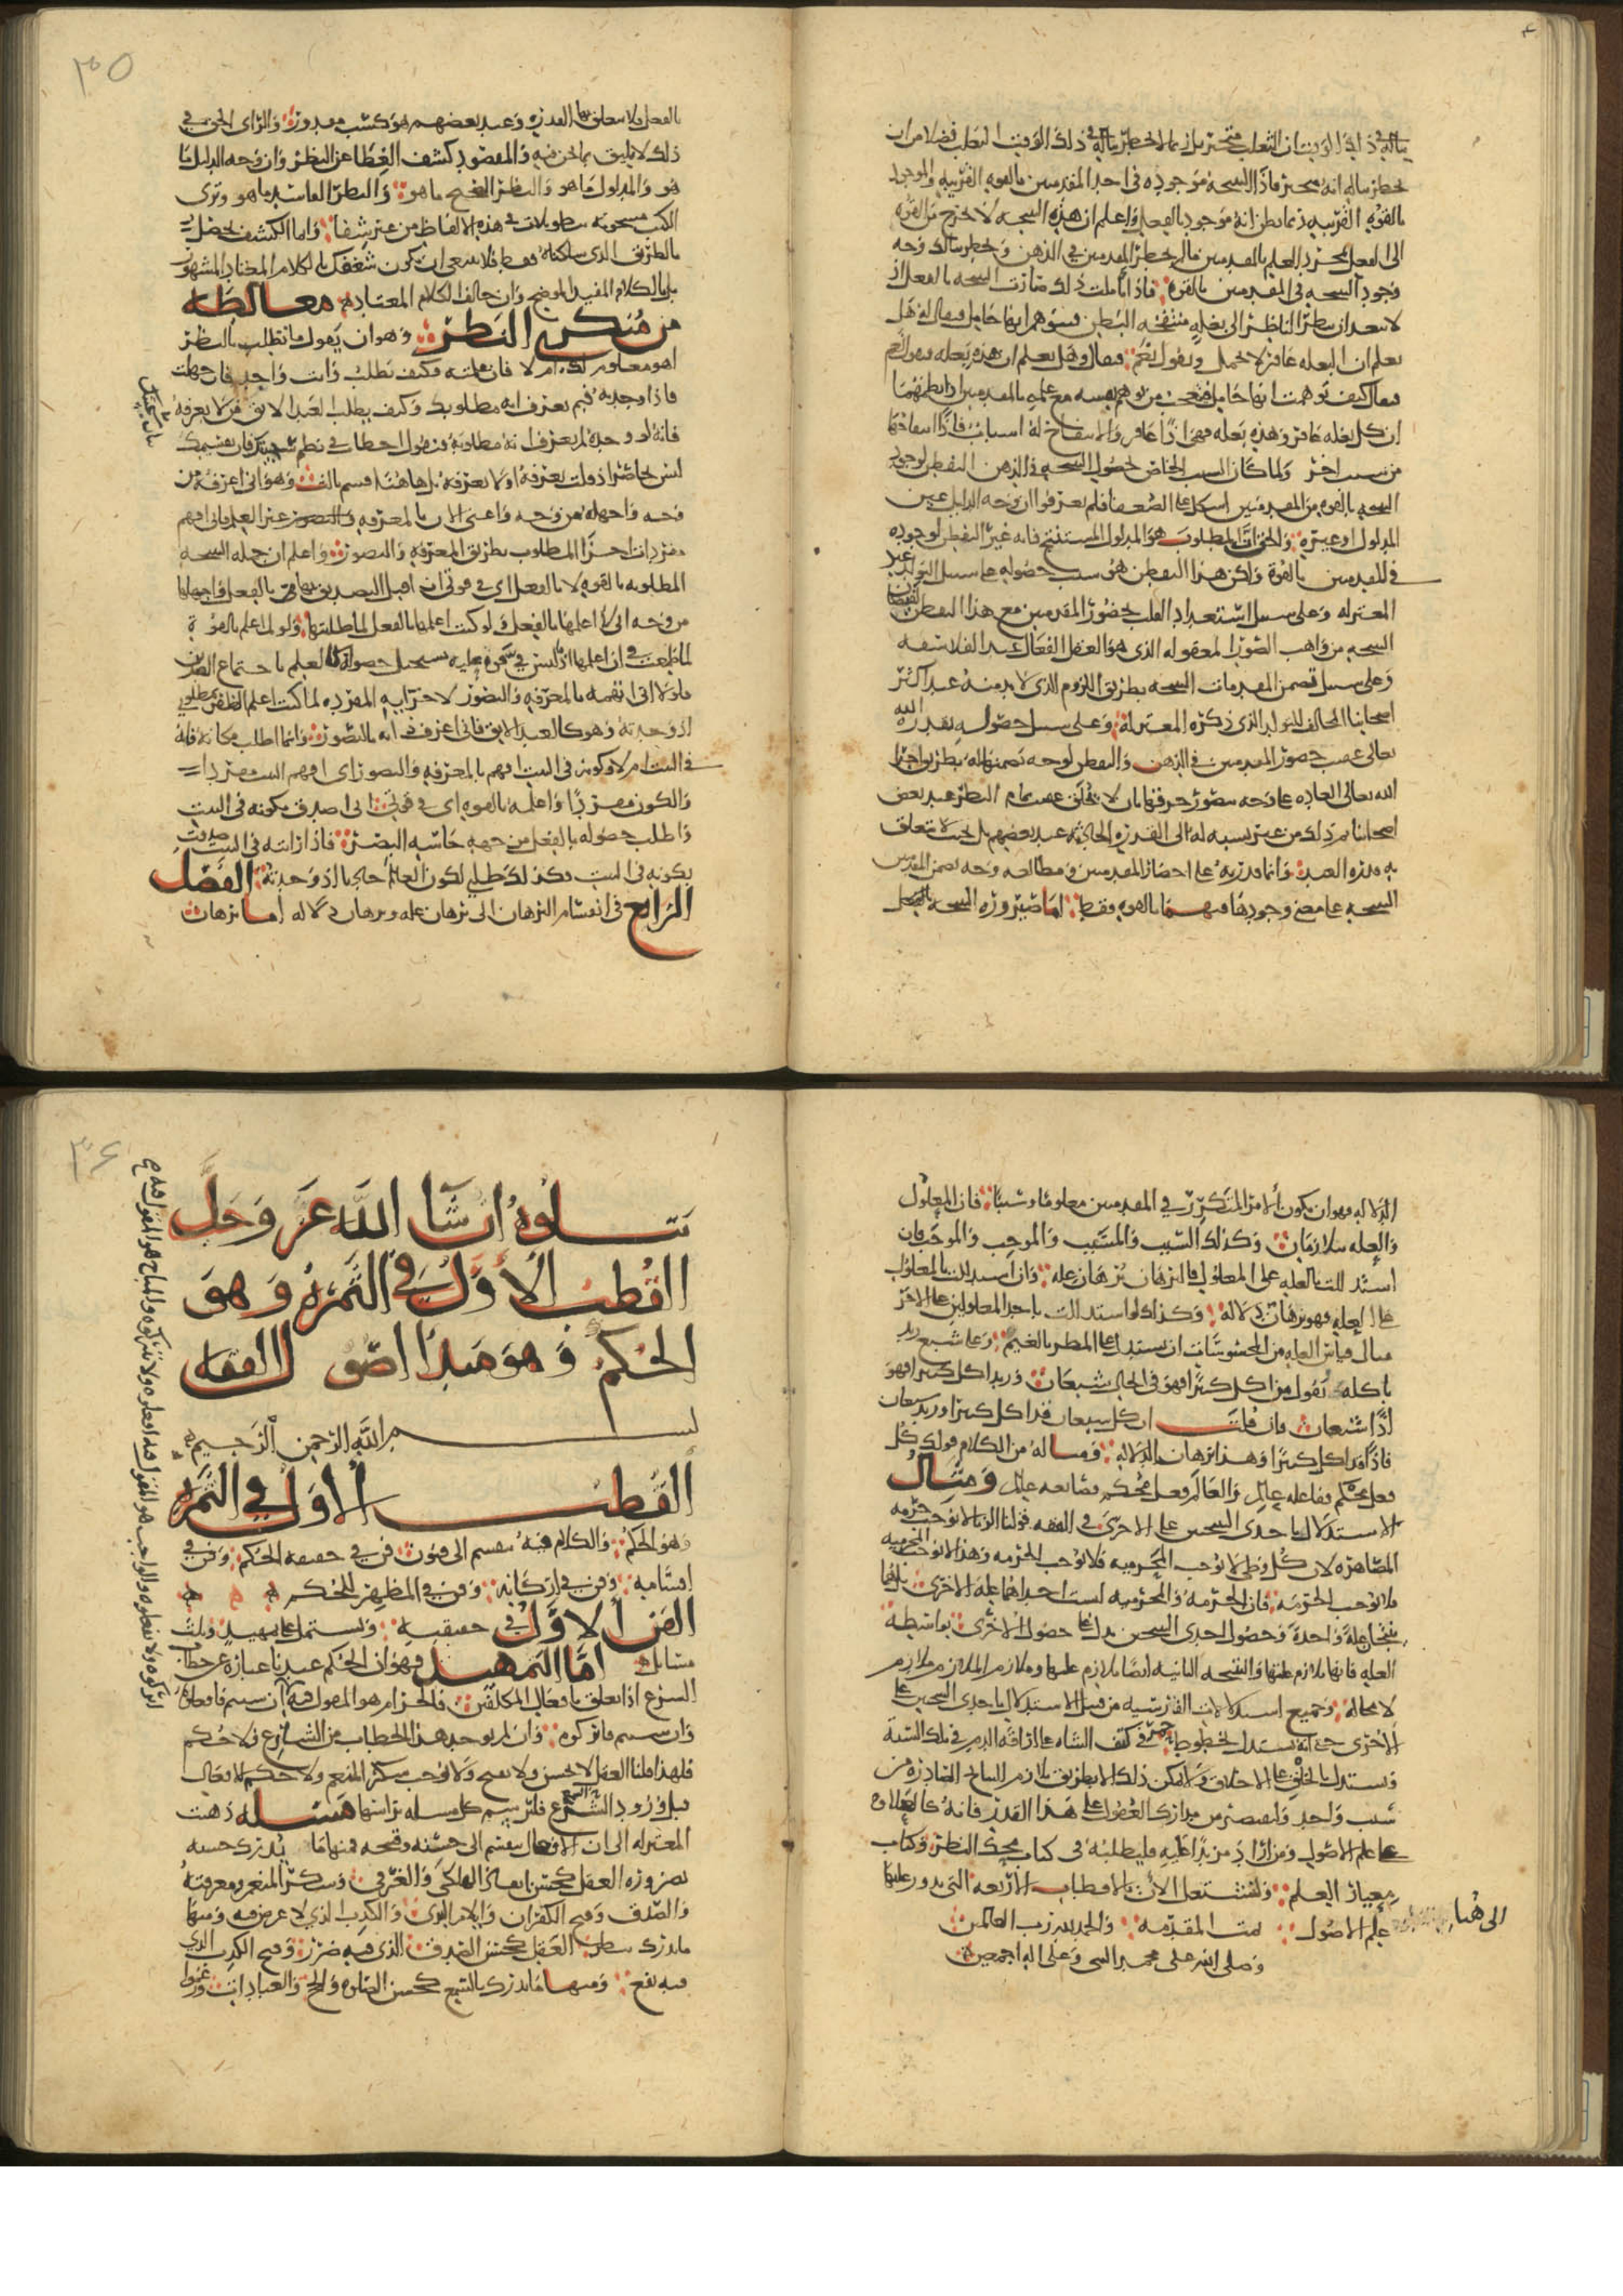 بباله في ذلك الوقت ان الثعلب متحيز بل ربما لا يخطر بباله في ذلك الوقت الثعلب فضلا من ان
يخطر بباله انه متحيز فاذا النتيجة موجودة في احدى المقدمتين بالقوة القريبة والموجود
بالقوة القريبة ربما يظن انه موجود بالفعل واعلم ان هذه النتيجة لا تخرج من القوة
الى الفعل بمجرد العلم بالمقدمتين ما لم يخطر المقدمتين في الذهن ويخطر ببالك وجه
وجود النتيجة في المقدمتين بالقوة فاذا تاملت ذلك صارت النتيجة بالفعل اذ
لا يبعد ان ينظر الناظر الى بغلة منتفخة البطن فيتوهم انها حامل فيقال له هل
تعلم ان البغلة عاقر لا تحمل فيقول نعم فيقال وهل تعلم ان هذه بغلة فيقول نعم
فيقال كيف توهمت انها حامل فتعجب من توهم نفسه مع علمه بالمقدمتين اذ نظمهما
ان كل بغلة عاقر وهذه بغلة فهي اذا عاقر والانتفاخ له اسباب فاذا انتفاخها
من سبب اخر ولما كان السبب الخاص لحصول النتيجة في الذهن التفطن لوجود
النتيجة بالقوة في المقدمتين اشكل على الضعفا فلم يعرفوا ان وجه الدليل عين
المدلول او غيره والحق ان المطلوب هو المدلول المستنتج فانه غير التفطن لوجوده
في المقدمتين بالقوة ولكن هذا التفطن هو سبب حصوله على سبيل التولد عند
المعتزلة وعلى سبيل استعداد القلب بحضور المقدمتين مع هذا التفطن لفيضان
النتيجة من واهب الصور المعقولة الذي هو العقل الفعال عند الفلاسفة
وعلى سبيل تضمن المقدمات النتيجة بطريق اللزوم الذي لا بد منه عند اكثر
اصحابنا المخالف للتولد الذي ذكره المعتزلة وعلى سبيل حصوله بقدرة الله
تعالى عقيب حضور المقدمتين في الذهن والتفطن لوجه تضمنهما له بطريق اجرا
الله تعالى العادة على وجه يتصور خرقها بان لا يخلق عقيب تمام النظر عند بعض
اصحابنا ثم ذلك من غير نسبة له الى القدرة الحادثة عند بعضهم بل بحيث لا تتعلق
به قدرة العبد وانما قدرته على احضار المقدمتين ومطالعة وجه تضمن المقدمتين
النتيجة على معنى وجودها فيهما بالقوة فقط اما صيرورة النتيجة بالفعل
بالفعل فلا تتعلق بها القدرة وعند بعضهم هو كسب مقدور والراي الحق في
ذلك لا يليق بما نحن فيه والمقصود كشف الغطا عن النظر وان وجه الدليل ما
هو والمدلول ما هو والنظر الصحيح ما هو والنظر الفاسد ما هو وترى
الكتب مشحونة بتطويلات في هذه الالفاظ من غير شفا واما الكشف يحصل
بالطريق الذي سلكناه فقط فلا ينبغي ان يكون شغفك بالكلام المعتاد المشهور
بل بالكلام المفيد الموضح وان خالف الكلام المعتاد مغالطة
من منكري النظر وهو ان يقول ما تطلب بالنظر
اهو معلوم لك ام لا فان علمته فكيف تطلب وانت واجد فان جهلت
فاذا وجدته فبم تعرف انه مطلوبك وكيف يطلب العبد الابق من لا يعرفه
فانه لو وجده لم يعرف انه مطلوبه فنقول اخطات في نظم شبهتك فان تقسيمك
ليس بحاصر اذ قلت تعرفه او لا تعرفه بل هاهنا قسم ثالث وهو اني اعرفه من
وجه واجهله من وجه واعني الان بالمعرفة غير العلم فاني افهم
مفردات اجزا المطلوب بطريق المعرفة والتصور واعلم ان جملة النتيجة
المطلوبة بالقوة لا بالفعل اي في قوتي ان اقبل التصديق بها بالفعل واجهلها
من وجه اي لا اعلمها بالفعل ولو كنت اعلمها بالفعل لما طلبتها ولو لم اعلم بالقوة
لما طمعت في ان اعلمها اذ ما ليس في قوتي علمه يستحيل حصوله كالعلم باجتماع الضدين
ولولا اني افهمه بالمعرفة والتصور لاجزايه المفردة لما كنت اعلم الظفر بمطلوبي
اذا وجدته وهو كالعبد الابق فاني اعرف ذاته بالتصور وانما اطلب مكانه فانه
في البيت ام لا وكونه في البيت افهم بالمعرفة والتصور اي افهم البيت مفردا
والكون مفردا واعلمه بالقوة اي في قوتي ان اصدق بكونه في البيت
واطلب حصوله بالفعل من جهة حاسة البصر فاذا رايته في البيت صدقت
بكونه في البيت فكذلك طلبي لكون العالم حادثا اذا وجدته الفصل
الرابع في انقسام البرهان الى برهان علة وبرهان دلالة اما برهان
الدلالة فهو ان يكون الامر المتكرر في المقدمتين معلولا ومسببا فان المعلول
والعلة يتلازمان وكذلك السبب والمسبب والموجب والموجب فان
استدللت بالعلة على المعلول فالبرهان برهان علة وان استدللت بالمعلول
على العلة فهو برهان دلالة وكذلك لو استدللت باحد المعلولين على الاخر
مثال قياس العلة من المحسوسات ان يستدل على المطر بالغيم وعلى شبع زيد
باكله تقول من اكل كثيرا فهو في الحال شبعان وزيد اكل كثيرا فهو
اذا شبعان فان قلت ان كل شبعان قد اكل كثيرا وزيد شبعان
فاذا قد اكل كثيرا وهذا برهان الدلالة ومثاله من الكلام قولك كل
فعل محكم ففاعله عالم والعالم فعل محكم فصانعه عالم ومثال
الاستدلال باحدى النتيجتين على الاخرى في الفقه قولنا الزنا لا يوجب حرمة
المصاهرة لان كل وطي لا يوجب المحرمية فلا يوجب الحرمة وهذا لا يوجب المحرمية
فلا يوجب الحرمة فان الحرمة والمحرمية ليست احداهما علة للاخرى بل هما
نتيجتا علة واحدة وحصول احدى النتيجتين يدل على حصول الاخرى بواسطة
العلة فانها تلازم علتها والنتيجة الثانية ايضا تلازم علتها وملازم الملازم ملازم
لا محالة وجميع استدلالات الفراسة من قبيل الاستدلال باحدى النتيجتين على
الاخرى حتى انه يستدل بخطوط حمر في كتف الشاة على اراقة الدم في تلك السنة
ويستدل بالخلق على الاخلاق ولا يمكن ذلك الا بطريق تلازم النتايج الصادرة من
سبب واحد ولنقتصر من مدارك العقول على هذا القدر فانه كالعلاوة
على علم الاصول ومن اراد مزيدا عليه فليطلبه في كتاب محك النظر وكتاب
معيار العلم ولنشتغل الان بالاقطاب الاربعة التي يدور عليها
علم الاصول تمت المقدمة والحمد لله رب العالمين
وصلى الله على محمد النبي وعلى اله اجمعين
الى هنا
يتلوه ان شا الله عز وجل
القطب الاول في الثمرة وهو
الحكم وهو مبدا اصول الفقه
بسم الله الرحمن الرحيم
القطب الاول في الثمرة
وهو الحكم والكلام فيه ينقسم الى فنون فن في حقيقة الحكم وفن في
اقسامه وفن في اركانه وفن في المظهر للحكم
الفن الاول في حقيقته ويشتمل على تمهيد وثلث
مسايل اما التمهيد فهو ان الحكم عندنا عبارة عن خطاب
الشرع اذا تعلق بافعال المكلفين فالحرام هو المقول فيه ان شيتم فافعلوه
وان شيتم فاتركوه وان لم يوجد هذا الخطاب من الشارع فلا حكم
فلهذا قلنا العقل لا يحسن ولا يقبح ولا يوجب شكر المنعم ولا حكم للافعال
قبل ورود الشرع فلنرسم كل مسلة براسها مسلة ذهبت
المعتزلة الى ان الافعال تنقسم الى حسنة وقبيحة فمنها ما يدرك حسنه
بضرورة العقل كحسن انقاذ الهلكى والغرقى وشكر المنعم ومعرفته
والصدق وقبح الكفران وايلام البري والكذب الذي لا غرض فيه ومنها
ما يدرك بنظر العقل كحسن الصدق الذي فيه ضرر وقبح الكذب الذي
فيه نفع ومنها ما يدرك بالسمع كحسن الصلوة والحج والعبادات وزعموا
٣٥
٣٦